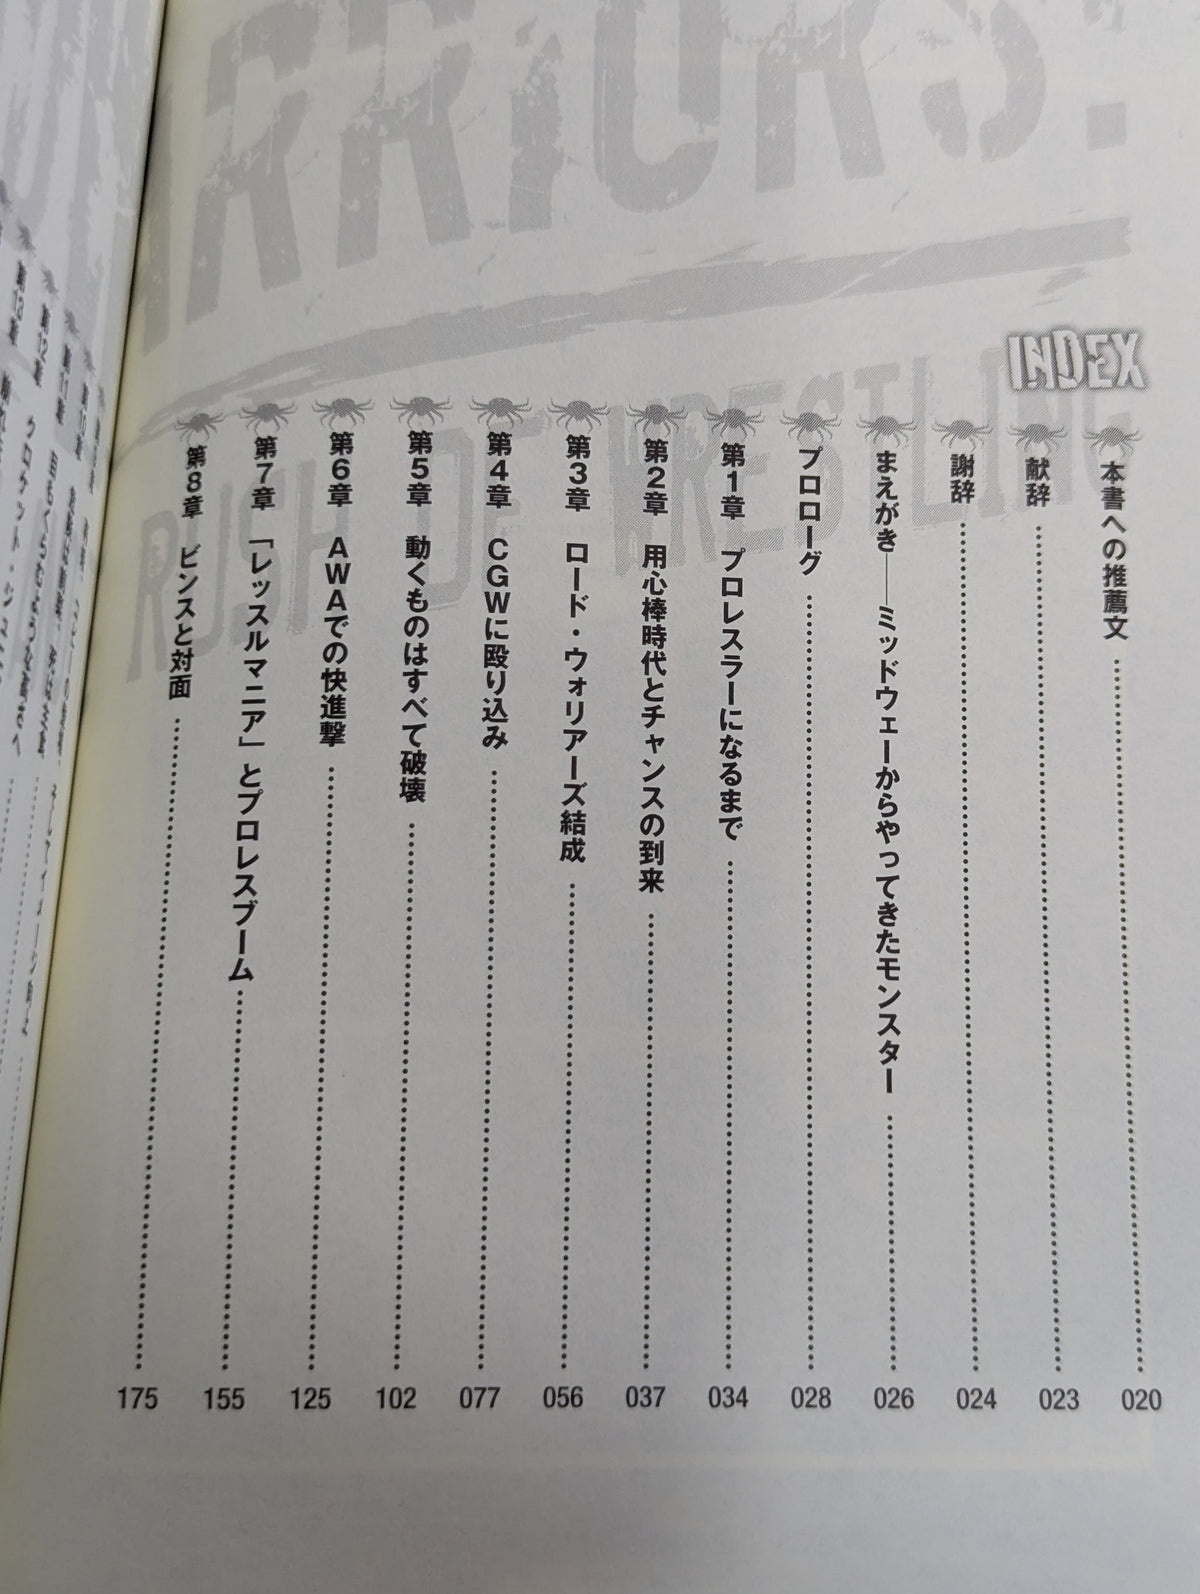 WARRIORS!
RUSH OF WRESTLING
INDEX
本書への推薦文 020
献辞 023
謝辞 024
まえがき――ミッドウェーからやってきたモンスター 026
プロローグ 028
第1章 プロレスラーになるまで 034
第2章 用心棒時代とチャンスの到来 037
第3章 ロード・ウォリアーズ結成 056
第4章 CGWに殴り込み 077
第5章 動くものはすべて破壊 102
第6章 AWAでの快進撃 125
第7章 「レッスルマニア」とプロレスブーム 155
第8章 ビンスと対面 175
第10章
第11章
第12章
第13章